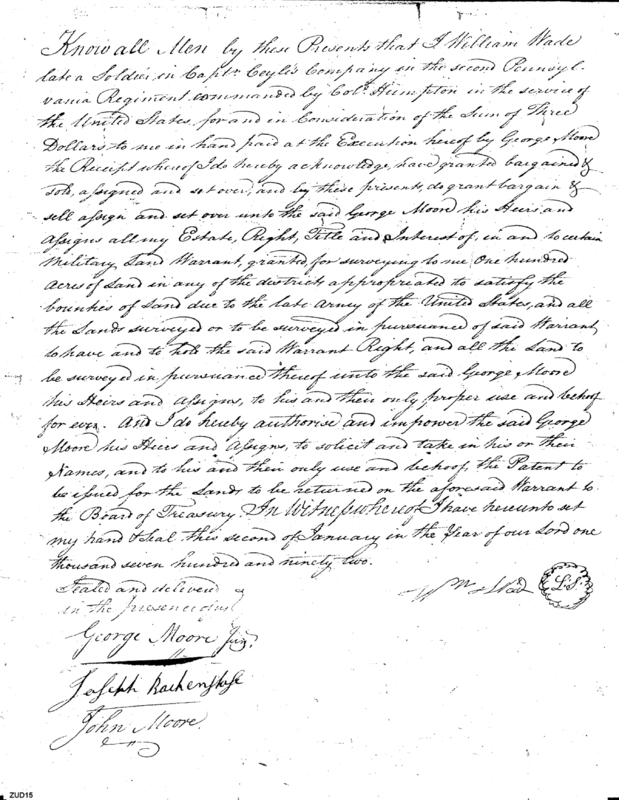 Know all Men by these Presents that I William Wade
late a Soldier in Captn. Coyle's Company in the second Pennsyl-
vania Regiment commanded by Colo. Humpton in the service of
the United States, for and in Consideration of the Sum of Three
Dollars to me in hand paid at the Execution hereof by George Moore
the Receipt whereof I do hereby acknowledge, have granted bargained &
sold, assigned and set over, and by these presents, do grant bargain &
sell assign and set over unto the said George Moore his Heirs, and
Assigns all my Estate, Right, Title and Interest of, in and to certain
Military Land Warrant, granted for surveying to me One hundred
Acres of Land in any of the districts appropriated to satisfy the
bounties of Land due to the late Army of the United States, and all
the Lands surveyed or to be surveyed in pursuance of said Warrant,
to have and to hold the said Warrant Right, and all the Land to
be surveyed in pursuance thereof unto the said George Moore
his Heirs and Assigns, to his and their only proper use and behoof
for ever. And I do hereby authorise and impower the said George
Moore his Heirs and Assigns, to solicit and take in his or their
Names, and to his and their only use and behoof, the Patent to
be issued for the Lands to be returned on the aforesaid Warrant to
the Board of Treasury. In Witness whereof I have hereunto set
my hand & Seal this second of January in the Year of our Lord one
thousand seven hundred and ninety two.
Sealed and delivered
in the presence of us
Wm Wad L.S.
George Moore Junr.
Joseph
John Moore.
ZUD15